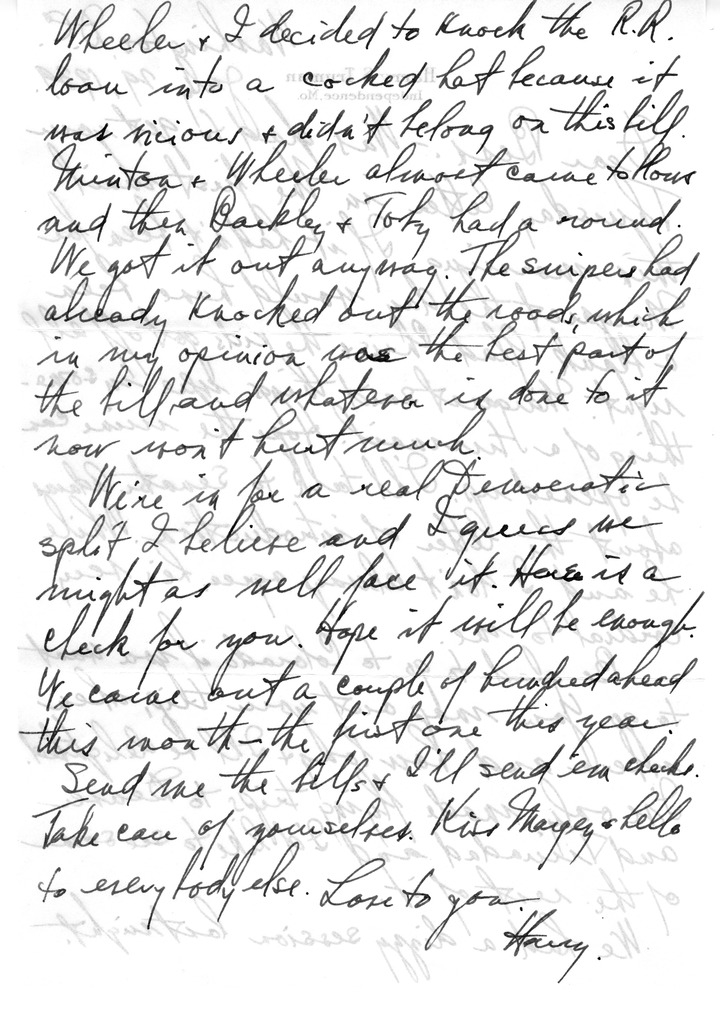 Wheeler & I decided to knock the R.R.
loan into a cocked hat because it
was vicious & didn't belong on this bill.
Minton & Wheeler almost came to blows
and then Barkley & Toby had a round.
We got it out anyway. The snipers had
already knocked out the roads, which
in my opinion was the best part of
the bill and whatever is done to it
now won't hurt much.
We're in for a real Democratic
split I believe and I guess we
might as well face it. Here is a
check for you. Hope it will be enough.
We came out a couple of hundred ahead
this month - the first one this year.
Send me the bills & I'll send em checks.
Take care of yourselves. Kiss Margey & hello
to everybody else. Love to you.
Harry.